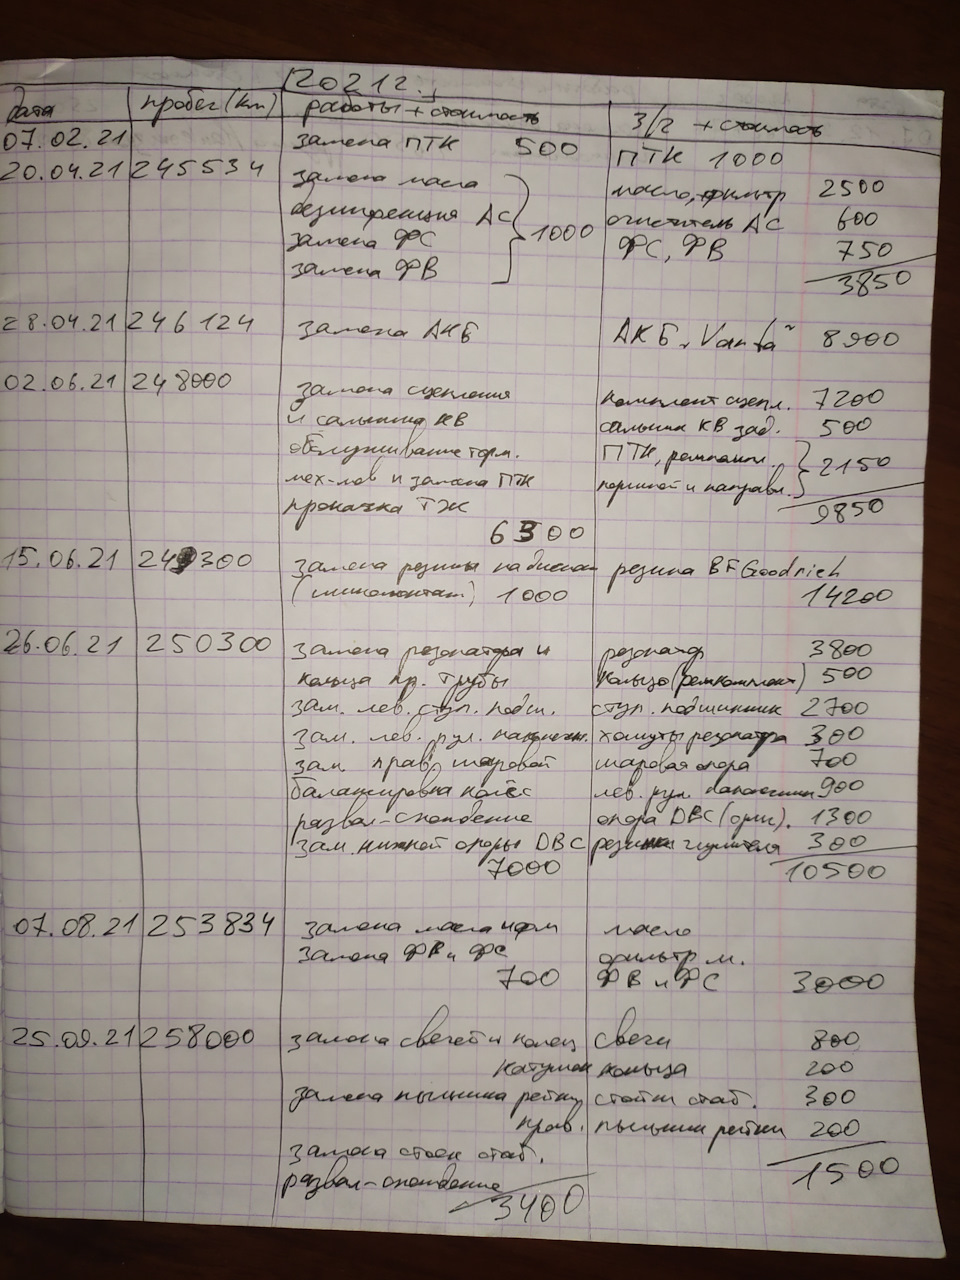 2021г.
дата пробег (km) работы + стоимость З/Ч + стоимость
07.02.21 замена ПТК 500 ПТК 1000
20.04.21 245534 замена масла масло, фильтр 2500
дезинфекция АС очиститель АС 600
замена ФС 1000 ФС, ФВ 750
замена ФВ 3850
28.04.21 246124 замена АКБ АКБ "Vanta" 8900
02.06.21 248000 замена сцепления комплект сцепл. 7200
и сальника КВ сальник КВ зад. 500
обслуживание торм. ПТК, ремкомпл. 2150
мех-мов и замена ПТК поршней и направл.
прокачка ТЖ 9850
6300
15.06.21 249300 замена резины на дисках резина BFGoodrich
(шиномонтаж) 1000 14200
26.06.21 250300 замена резонатора и резонатор 3800
кольца пр. трубы кольцо (ремкомплект) 500
зам. лев. ступ. подш. ступ. подшипник 2700
зам. лев. рул. наконечн. хомуты резонатора 300
зам. прав. шаровой шаровая опора 700
балансировка колёс лев. рул. наконечник 900
развал-схождение опора DBC (ориг). 1300
зам. нижней опоры DBC резинки глушителя 300
7000 10500
07.08.21 253834 замена масла и фм масло
замена ФВ и ФС фильтр м.
700 ФВ и ФС 3000
25.09.21 258000 замена свечей и колец свечи 800
катушек кольца 200
замена пыльника рейки стойки стаб. 300
прав. пыльник рейки 200
замена стоек стаб. 1500
развал-схождение
3400